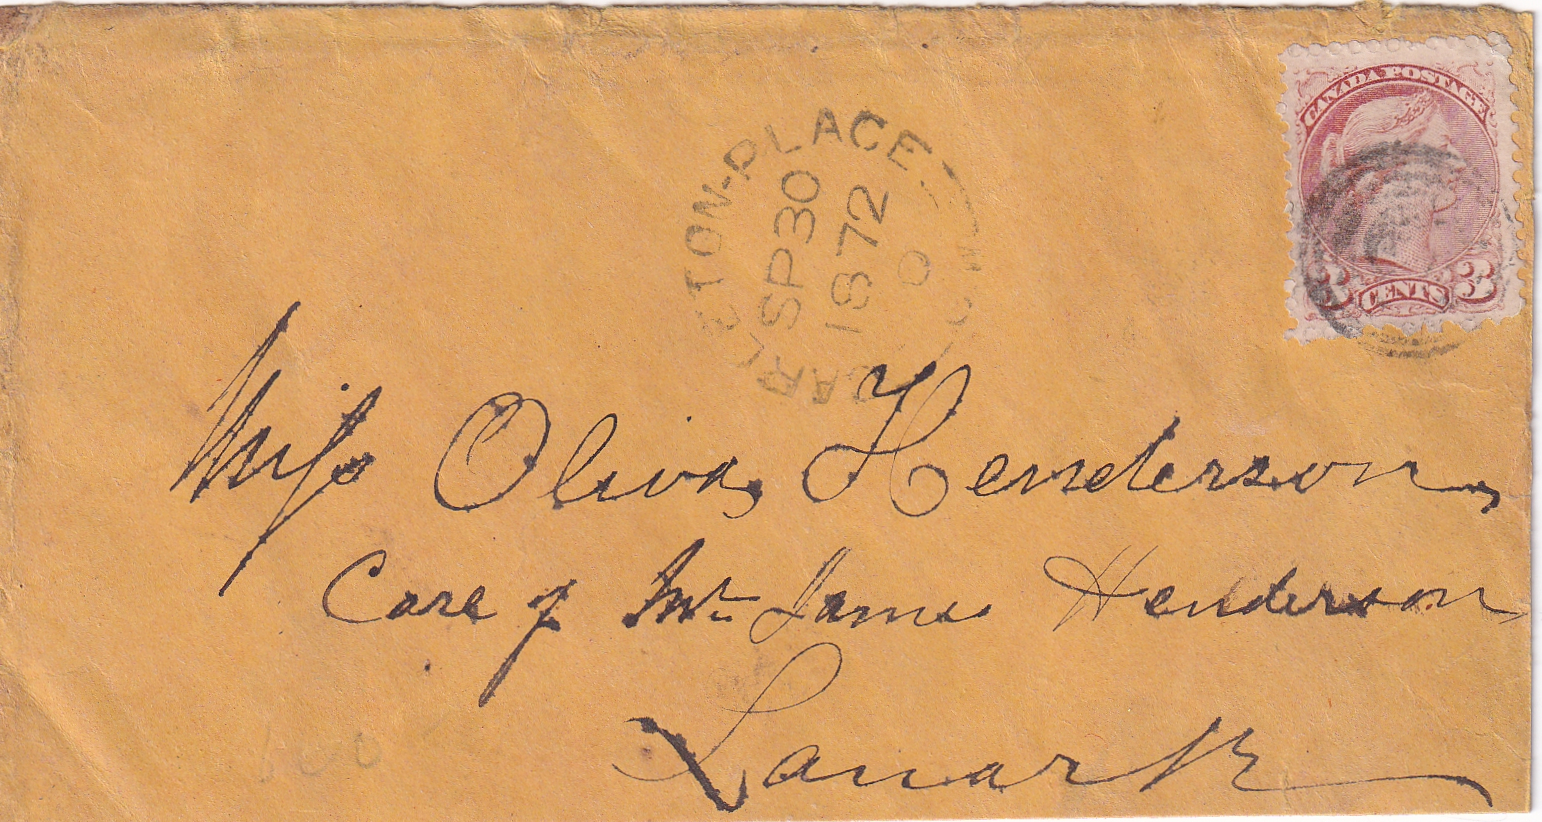 CANADA POSTAGE
3 CENTS 3
CARLETON-PLACE
SP 30
1872
Miss Oliva Henderson,
Care of Mr. James Henderson
Lanark